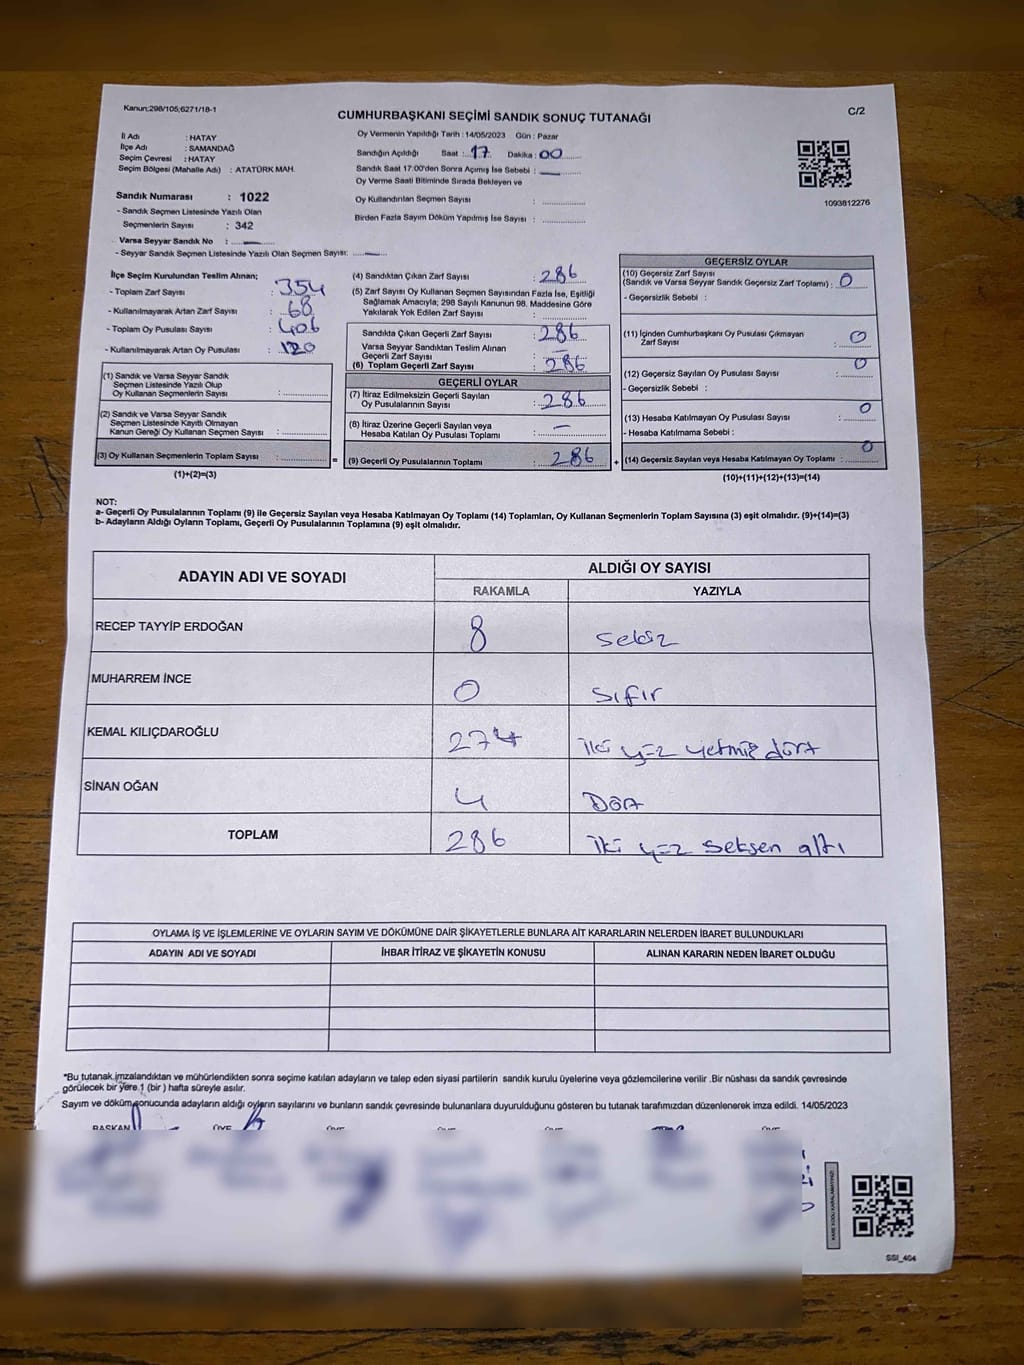 Kanun:298/105;6271/18-1
C/2
CUMHURBAŞKANI SEÇİMİ SANDIK SONUÇ TUTANAĞI
İl Adı : HATAY
İlçe Adı : SAMANDAĞ
Seçim Çevresi : HATAY
Seçim Bölgesi (Mahalle Adı) : ATATÜRK MAH.
Oy Vermenin Yapıldığı Tarih : 14/05/2023 Gün : Pazar
Sandığın Açıldığı Saat : 17 Dakika : 00
Sandık Saat 17.00'den Sonra Açmış İse Sebebi :
Oy Verme Saati Bitiminde Sırada Bekleyen ve
Oy Kullandırılan Seçmen Sayısı :
Birden Fazla Sayım Döküm Yapılmış İse Sayısı :
1093812276
Sandık Numarası : 1022
- Sandık Seçmen Listesinde Yazılı Olan
Seçmenlerin Sayısı : 342
Varsa Seyyar Sandık No :
- Seyyar Sandık Seçmen Listesinde Yazılı Olan Seçmen Sayısı:
İlçe Seçim Kurulundan Teslim Alınan;
- Toplam Zarf Sayısı : 354
- Kullanılmayarak Artan Zarf Sayısı : 68
- Toplam Oy Pusulası Sayısı : 406
- Kullanılmayarak Artan Oy Pusulası : 120
(1) Sandık ve Varsa Seyyar Sandık
Seçmen Listesinde Yazılı Olup
Oy Kullanan Seçmenlerin Sayısı :
(2) Sandık ve Varsa Seyyar Sandık
Seçmen Listesinde Kayıtlı Olmayan
Kanun Gereği Oy Kullanan Seçmen Sayısı :
(3) Oy Kullanan Seçmenlerin Toplam Sayısı :
(1)+(2)=(3)
=
(4) Sandıktan Çıkan Zarf Sayısı : 286
(5) Zarf Sayısı Oy Kullanan Seçmen Sayısından Fazla İse, Eşitliği
Sağlamak Amacıyla; 298 Sayılı Kanunun 98. Maddesine Göre
Yakılarak Yok Edilen Zarf Sayısı :
Sandıkta Çıkan Geçerli Zarf Sayısı : 286
Varsa Seyyar Sandıktan Teslim Alınan
Geçerli Zarf Sayısı : –
(6) Toplam Geçerli Zarf Sayısı : 286
GEÇERLİ OYLAR
(7) İtiraz Edilmeksizin Geçerli Sayılan
Oy Pusulalarının Sayısı : 286
(8) İtiraz Üzerine Geçerli Sayılan veya
Hesaba Katılan Oy Pusulası Toplamı : –
(9) Geçerli Oy Pusulalarının Toplamı : 286
+
GEÇERSİZ OYLAR
(10) Geçersiz Zarf Sayısı
(Sandık ve Varsa Seyyar Sandık Geçersiz Zarf Toplamı) : 0
- Geçersizlik Sebebi :
(11) İçinden Cumhurbaşkanı Oy Pusulası Çıkmayan
Zarf Sayısı : 0
(12) Geçersiz Sayılan Oy Pusulası Sayısı : 0
- Geçersizlik Sebebi :
(13) Hesaba Katılmayan Oy Pusulası Sayısı : 0
- Hesaba Katılmama Sebebi :
(14) Geçersiz Sayılan veya Hesaba Katılmayan Oy Toplamı : 0
(10)+(11)+(12)+(13)=(14)
NOT:
a- Geçerli Oy Pusulalarının Toplamı (9) ile Geçersiz Sayılan veya Hesaba Katılmayan Oy Toplamı (14) Toplamları, Oy Kullanan Seçmenlerin Toplam Sayısına (3) eşit olmalıdır. (9)+(14)=(3)
b- Adayların Aldığı Oyların Toplamı, Geçerli Oy Pusulalarının Toplamına (9) eşit olmalıdır.
ADAYIN ADI VE SOYADI
ALDIĞI OY SAYISI
RAKAMLA YAZIYLA
RECEP TAYYİP ERDOĞAN 8 sekiz
MUHARREM İNCE 0 sıfır
KEMAL KILIÇDAROĞLU 274 iki yüz yetmiş dört
SİNAN OĞAN 4 Dört
TOPLAM 286 iki yüz seksen altı
OYLAMA İŞ VE İŞLEMLERİNE VE OYLARIN SAYIM VE DÖKÜMÜNE DAİR ŞİKAYETLERLE BUNLARA AİT KARARLARIN NELERDEN İBARET BULUNDUKLARI
ADAYIN ADI VE SOYADI İHBAR İTİRAZ VE ŞİKAYETİN KONUSU ALINAN KARARIN NEDEN İBARET OLDUĞU
*Bu tutanak imzalandıktan ve mühürlendikten sonra seçime katılan adayların ve talep eden siyasi partilerin sandık kurulu üyelerine veya gözlemcilerine verilir .Bir nüshası da sandık çevresinde
görülecek bir yere 1 (bir ) hafta süreyle asılır.
Sayım ve döküm sonucunda adayların aldığı oyların sayılarını ve bunların sandık çevresinde bulunanlara duyurulduğunu gösteren bu tutanak tarafımızdan düzenlenerek imza edildi. 14/05/2023
BAŞKAN ÜYE
SSI_404